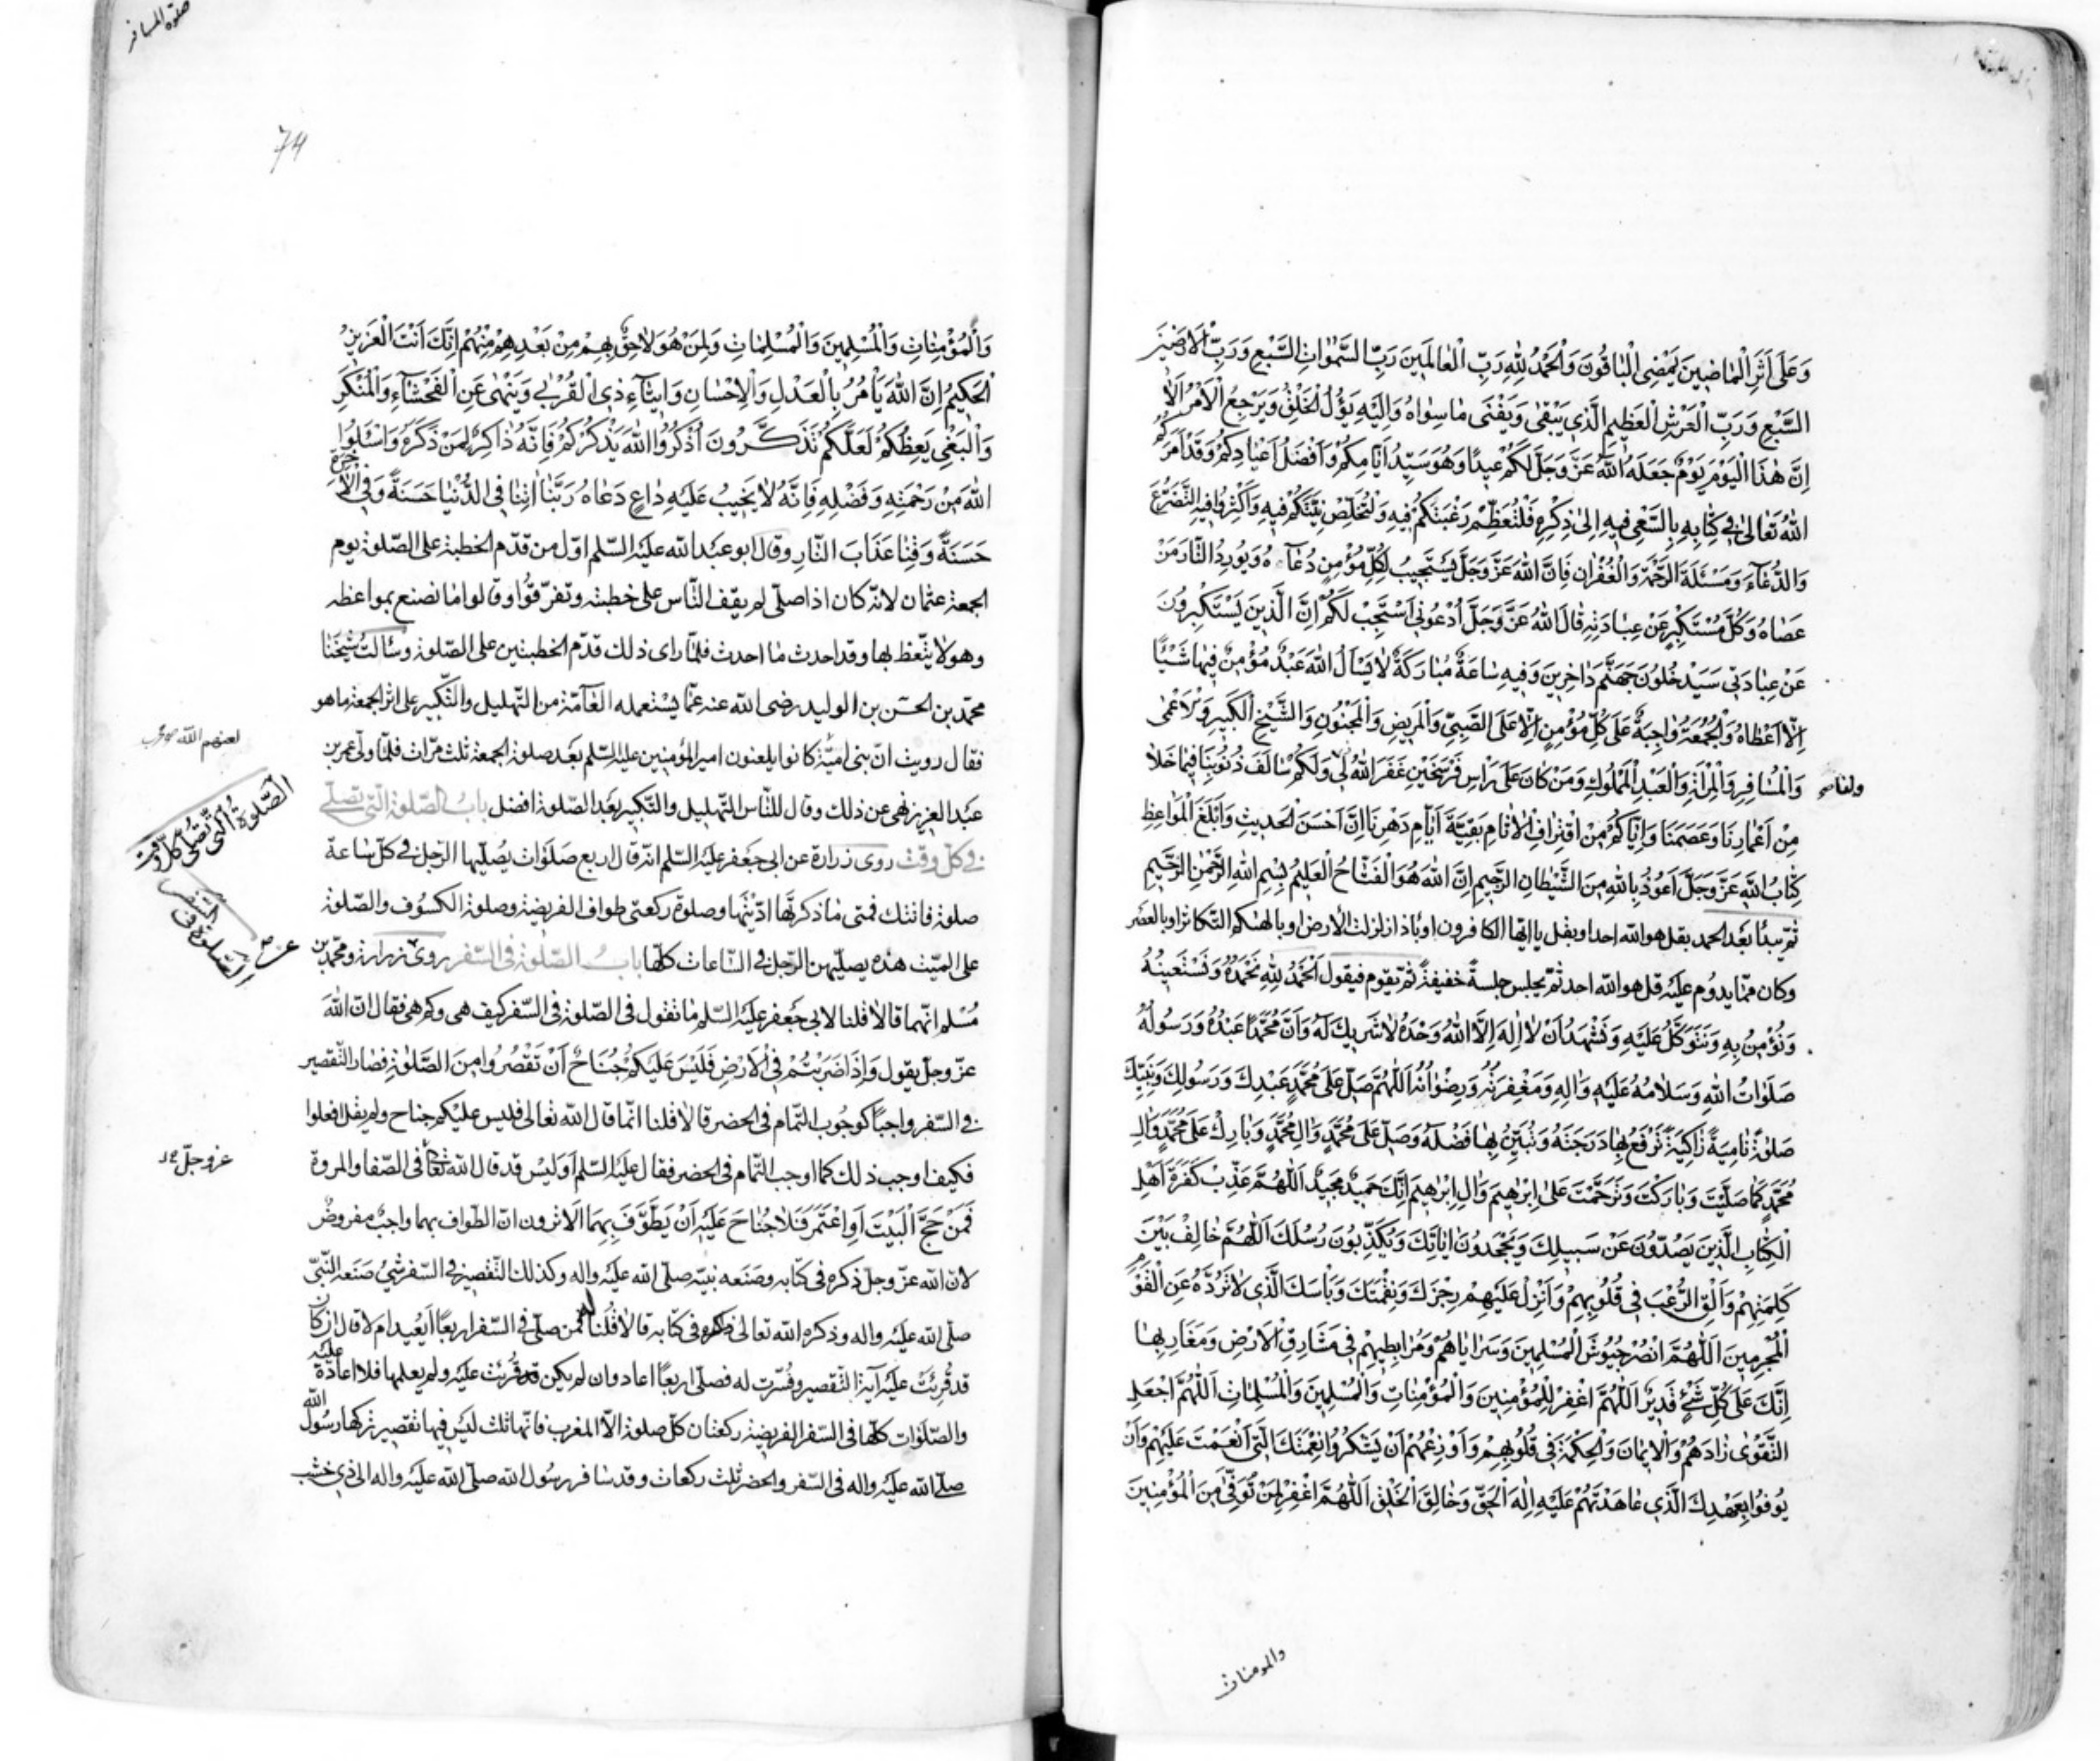 وَعَلَى أَثَرِ الْمَاضِينَ يَمْضِي الْبَاقُونَ وَالْحَمْدُ لِلّٰهِ رَبِّ الْعَالَمِينَ رَبِّ السَّمٰوَاتِ السَّبْعِ وَرَبِّ الْاَرَضِينَ
السَّبْعِ وَرَبِّ الْعَرْشِ الْعَظِيمِ الَّذِي يَبْقٰى وَيَفْنٰى مَا سِوَاهُ وَاِلَيْهِ يَؤُلُ الْخَلْقُ وَيَرْجِعُ الْاَمْرُ اَلَا
اِنَّ هٰذَا الْيَوْمَ يَوْمٌ جَعَلَهُ اللّٰهُ عَزَّ وَجَلَّ لَكُمْ عِيدًا وَهُوَ سَيِّدُ اَيَّامِكُمْ وَاَفْضَلُ اَعْيَادِكُمْ وَقَدْ اَمَرَكُمُ
اللّٰهُ تَعَالٰى فِي كِتَابِهِ بِالسَّعْيِ فِيهِ اِلٰى ذِكْرِهِ فَلْتَعْظُمْ رَغْبَتُكُمْ فِيهِ وَلْتَخْلُصْ نِيَّتُكُمْ فِيهِ وَاَكْثِرُوا فِيهِ التَّضَرُّعَ
وَالدُّعَاءَ وَمَسْئَلَةَ الرَّحْمَةِ وَالْغُفْرَانِ فَاِنَّ اللّٰهَ عَزَّ وَجَلَّ يَسْتَجِيبُ لِكُلِّ مُؤْمِنٍ دُعَاءَهُ وَيُورِدُ النَّارَ مَنْ
عَصَاهُ وَكُلَّ مُسْتَكْبِرٍ عَنْ عِبَادَتِهِ قَالَ اللّٰهُ عَزَّ وَجَلَّ اُدْعُونِي اَسْتَجِبْ لَكُمْ اِنَّ الَّذِينَ يَسْتَكْبِرُونَ
عَنْ عِبَادَتِي سَيَدْخُلُونَ جَهَنَّمَ دَاخِرِينَ وَفِيهِ سَاعَةٌ مُبَارَكَةٌ لَا يَسْاَلُ اللّٰهَ عَبْدٌ مُؤْمِنٌ فِيهَا شَيْئًا
اِلَّا اَعْطَاهُ وَالْجُمُعَةُ وَاجِبَةٌ عَلَى كُلِّ مُؤْمِنٍ اِلَّا عَلَى الصَّبِيِّ وَالْمَرِيضِ وَالْمَجْنُونِ وَالشَّيْخِ الْكَبِيرِ وَالْاَعْمٰى
وَالْمُسَافِرِ وَالْمَرْاَةِ وَالْعَبْدِ الْمَمْلُوكِ وَمَنْ كَانَ عَلَى رَاْسِ فَرْسَخَيْنِ غَفَرَ اللّٰهُ لِي وَلَكُمْ سَالِفَ ذُنُوبِنَا فِيمَا خَلَا
مِنْ اَعْمَارِنَا وَعَصَمَنَا وَاِيَّاكُمْ مِنِ اقْتِرَافِ الْاٰثَامِ بَقِيَّةَ اَيَّامِ دَهْرِنَا اِنَّ اَحْسَنَ الْحَدِيثِ وَاَبْلَغَ الْمَوَاعِظِ
كِتَابُ اللّٰهِ عَزَّ وَجَلَّ اَعُوذُ بِاللّٰهِ مِنَ الشَّيْطَانِ الرَّجِيمِ اِنَّ اللّٰهَ هُوَ الْفَتَّاحُ الْعَلِيمُ بِسْمِ اللّٰهِ الرَّحْمٰنِ الرَّحِيمِ
ثم يبدأ بعد الحمد بقل هو الله احد او بقل يا ايها الكافرون او باذا زلزلت الأرض او بالهيكم التكاثر او بالعصر
وكان مما يدوم عليه قل هو الله احد ثم يجلس جلسة خفيفة ثم يقوم فيقول اَلْحَمْدُ لِلّٰهِ نَحْمَدُهُ وَنَسْتَعِينُهُ
وَنُؤْمِنُ بِهِ وَنَتَوَكَّلُ عَلَيْهِ وَنَشْهَدُ اَنْ لَا اِلٰهَ اِلَّا اللّٰهُ وَحْدَهُ لَا شَرِيكَ لَهُ وَاَنَّ مُحَمَّدًا عَبْدُهُ وَرَسُولُهُ
صَلَوَاتُ اللّٰهِ وَسَلَامُهُ عَلَيْهِ وَاٰلِهِ وَمَغْفِرَتُهُ وَرِضْوَانُهُ اَللّٰهُمَّ صَلِّ عَلَى مُحَمَّدٍ عَبْدِكَ وَرَسُولِكَ وَنَبِيِّكَ
صَلٰوةً نَامِيَةً زَاكِيَةً تَرْفَعُ بِهَا دَرَجَتَهُ وَتُبَيِّنُ بِهَا فَضْلَهُ وَصَلِّ عَلَى مُحَمَّدٍ وَاٰلِ مُحَمَّدٍ وَبَارِكْ عَلَى مُحَمَّدٍ وَاٰلِ
مُحَمَّدٍ كَمَا صَلَّيْتَ وَبَارَكْتَ وَتَرَحَّمْتَ عَلَى اِبْرٰهِيمَ وَاٰلِ اِبْرٰهِيمَ اِنَّكَ حَمِيدٌ مَجِيدٌ اَللّٰهُمَّ عَذِّبْ كَفَرَةَ اَهْلِ
الْكِتَابِ الَّذِينَ يَصُدُّونَ عَنْ سَبِيلِكَ وَيَجْحَدُونَ اٰيَاتِكَ وَيُكَذِّبُونَ رُسُلَكَ اَللّٰهُمَّ خَالِفْ بَيْنَ
كَلِمَتِهِمْ وَاَلْقِ الرُّعْبَ فِي قُلُوبِهِمْ وَاَنْزِلْ عَلَيْهِمْ رِجْزَكَ وَنِقْمَتَكَ وَبَاْسَكَ الَّذِي لَا تَرُدُّهُ عَنِ الْقَوْمِ
الْمُجْرِمِينَ اَللّٰهُمَّ انْصُرْ جُيُوشَ الْمُسْلِمِينَ وَسَرَايَاهُمْ وَمُرَابِطِيهِمْ فِي مَشَارِقِ الْاَرْضِ وَمَغَارِبِهَا
اِنَّكَ عَلَى كُلِّ شَيْءٍ قَدِيرٌ اَللّٰهُمَّ اغْفِرْ لِلْمُؤْمِنِينَ وَالْمُؤْمِنَاتِ وَالْمُسْلِمِينَ وَالْمُسْلِمَاتِ اَللّٰهُمَّ اجْعَلِ
التَّقْوٰى زَادَهُمْ وَالْاِيمَانَ وَالْحِكْمَةَ فِي قُلُوبِهِمْ وَاَوْزِعْهُمْ اَنْ يَشْكُرُوا نِعْمَتَكَ الَّتِي اَنْعَمْتَ عَلَيْهِمْ وَاَنْ
يُوفُوا بِعَهْدِكَ الَّذِي عَاهَدْتَهُمْ عَلَيْهِ اِلٰهَ الْحَقِّ وَخَالِقَ الْخَلْقِ اَللّٰهُمَّ اغْفِرْ لِمَنْ تُوُفِّيَ مِنَ الْمُؤْمِنِينَ
والمومنات
صلوة المسافر
74
وَالْمُؤْمِنَاتِ وَالْمُسْلِمِينَ وَالْمُسْلِمَاتِ وَلِمَنْ هُوَ لَاحِقٌ بِهِمْ مِنْ بَعْدِهِمْ مِنْهُمْ اِنَّكَ اَنْتَ الْعَزِيزُ
الْحَكِيمُ اِنَّ اللّٰهَ يَاْمُرُ بِالْعَدْلِ وَالْاِحْسَانِ وَاِيتَاءِ ذِي الْقُرْبٰى وَيَنْهٰى عَنِ الْفَحْشَاءِ وَالْمُنْكَرِ
وَالْبَغْيِ يَعِظُكُمْ لَعَلَّكُمْ تَذَكَّرُونَ اُذْكُرُوا اللّٰهَ يَذْكُرْكُمْ فَاِنَّهُ ذَاكِرٌ لِمَنْ ذَكَرَهُ وَاسْئَلُوا
اللّٰهَ مِنْ رَحْمَتِهِ وَفَضْلِهِ فَاِنَّهُ لَا يَخِيبُ عَلَيْهِ دَاعٍ دَعَاهُ رَبَّنَا اٰتِنَا فِي الدُّنْيَا حَسَنَةً وَفِي الْاٰخِرَةِ
حَسَنَةً وَقِنَا عَذَابَ النَّارِ وقال ابو عبد الله عليه السلم اول من قدم الخطبة على الصلوة يوم
الجمعة عثمان لانه كان اذا صلى لم يقف الناس على خطبته وتفرقوا وقالوا ما نصنع بمواعظه
وهو لا يتعظ بها وقد احدث ما احدث فلما راى ذلك قدم الخطبتين على الصلوة وسألت شيخنا
محمد بن الحسن بن الوليد رضى الله عنه عما يستعمله العامة من التهليل والتكبير على اثر الجمعة ما هو
فقال رويت ان بنى امية كانوا يلعنون امير المؤمنين عليه السلم بعد صلوة الجمعة ثلث مرات فلما ولى عمر بن
لعنهم الله
عبد العزيز نهى عن ذلك وقال للناس التهليل والتكبير بعد الصلوة افضل باب الصلوة التى تصلى
في كل وقت روى زرارة عن ابى جعفر عليه السلم انه قال اربع صلوات يصليها الرجل في كل ساعة
الصلوة التى تصلى كل وقت
صلوة فاتتك فمتى ما ذكرتها اديتها وصلوة ركعتى طواف الفريضة وصلوة الكسوف والصلوة
على الميت هذه يصليهن الرجل في الساعات كلها باب الصلوة فى السفر روى زرارة ومحمد بن
الصلوة فى السفر
مسلم انهما قالا قلنا لابى جعفر عليه السلم ما تقول فى الصلوة فى السفر كيف هى وكم هى فقال ان الله
عز وجل يقول وَاِذَا ضَرَبْتُمْ فِي الْاَرْضِ فَلَيْسَ عَلَيْكُمْ جُنَاحٌ اَنْ تَقْصُرُوا مِنَ الصَّلٰوةِ فصار التقصير
في السفر واجبا كوجوب التمام فى الحضر قالا قلنا انما قال الله تعالى فليس عليكم جناح ولم يقل افعلوا
فكيف اوجب ذلك كما اوجب التمام فى الحضر فقال عليه السلم اوليس قد قال الله تعالى فى الصفا والمروة
عز وجل
فَمَنْ حَجَّ الْبَيْتَ اَوِ اعْتَمَرَ فَلَا جُنَاحَ عَلَيْهِ اَنْ يَطَّوَّفَ بِهِمَا الا ترون ان الطواف بهما واجب مفروض
لان الله عز وجل ذكره فى كتابه وصنعه نبيه صلى الله عليه واله وكذلك التقصير فى السفر شئ صنعه النبى
صلى الله عليه واله وذكره الله تعالى ذكره فى كتابه قالا قلنا له فمن صلى فى السفر اربعا ايعيد ام لا قال ان كان
قد قرئت عليه آية التقصير وفسرت له فصلى اربعا اعاد وان لم يكن قد قرئت عليه ولم يعلمها فلا اعادة عليه
والصلوات كلها فى السفر الفريضة ركعتان كل صلوة الا المغرب فانها ثلث ليس فيها تقصير تركها رسول الله
صلى الله عليه واله فى السفر والحضر ثلث ركعات وقد سافر رسول الله صلى الله عليه واله الى ذى خشب